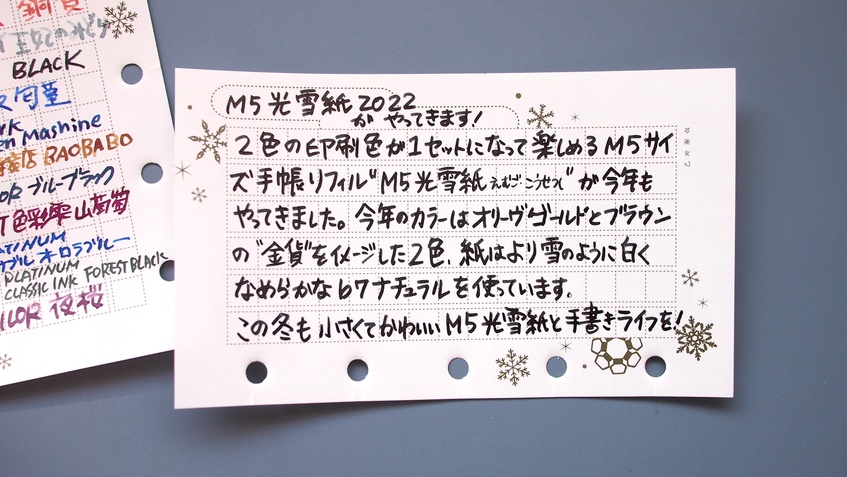 銅貨
BLACK
Mashine
BAOBABO
ブルーブラック
色彩雫山葡萄
PLATINUM
オーロラブルー
PLATINUM
CLASSIC INK FOREST BLACK
夜桜
M5光雪紙2022
が やってきます!
2色の印刷色が1セットになって楽しめるM5サイ
ズ手帳リフィル“M5光雪紙えむごこうせつし”が今年も
やってきました。今年のカラーはオリーヴゴールドとブラウン
の“金貨”をイメージした2色、紙はより雪のように白く
なめらかなb7ナチュラルを使っています。
この冬も小さくてかわいいM5光雪紙と手書きライフを!